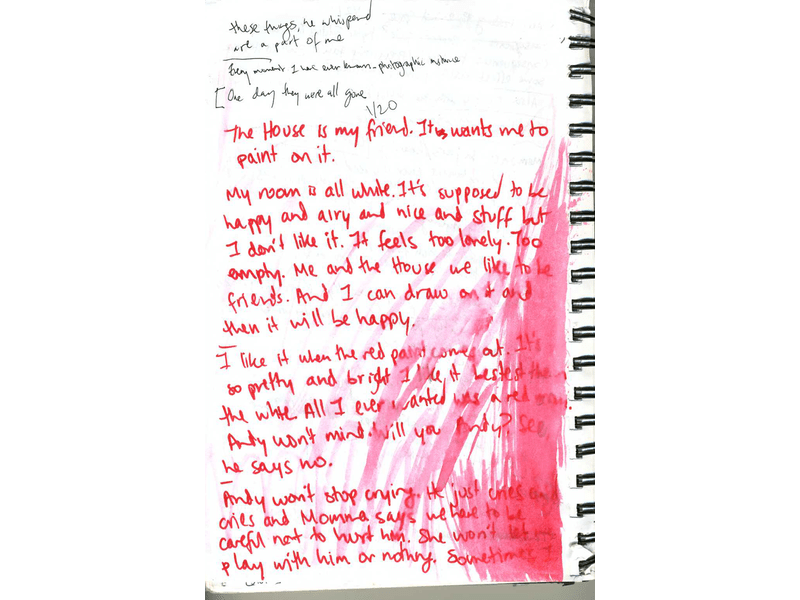 these things, he whispered
are a part of me
Every moment I have ever known - photographic instance
[One day they were all gone
1/20
The House is my friend. It wants me to
paint on it.
My room is all white. It's supposed to be
happy and airy and nice and stuff but
I don't like it. It feels too lonely. Too
empty. Me and the House we like to be
friends. And I can draw on it and
then it will be happy.
I like it when the red paint comes out. It's
so pretty and bright I like it bestest then
the white. All I ever wanted was a red
Andy won't mind. Will you Andy? See,
he says no.
Andy won't stop crying. He just cries and
cries and Momma says we have to be
careful not to hurt him. She won't let me
play with him or nothing. Sometimes I